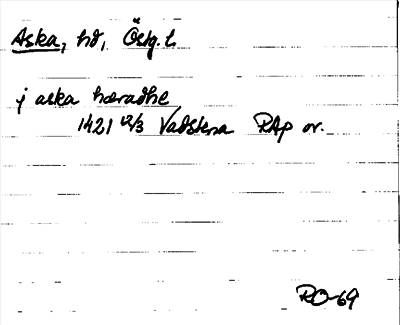 Aska, hd, Östg.l.
j aska hæradhe
1421 12/3 Vadstena RAp or.
RO-69